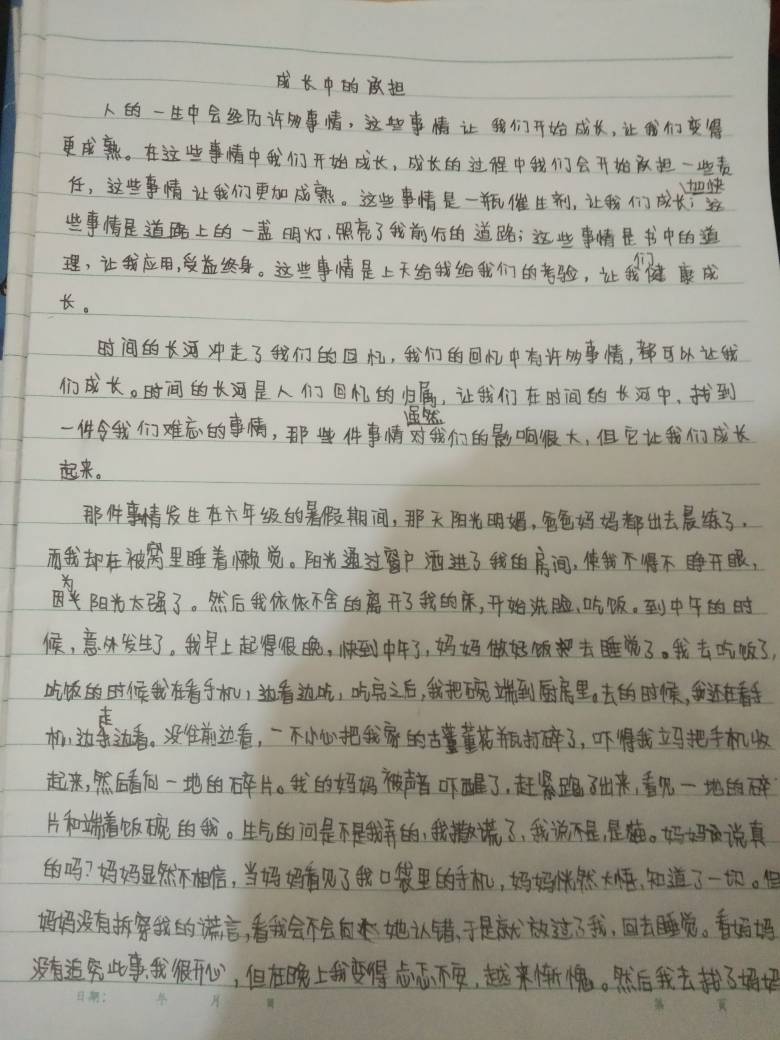 成长中的承担
人的一生中会经历许多事情，这些事情让我们开始成长，让我们变得
更成熟。在这些事情中我们开始成长，成长的过程中我们会开始承担一些责
任，这些事情让我们更加成熟。这些事情是一瓶催生剂，让我们加快成长；这
些事情是道路上的一盏明灯，照亮了我前行的道路；这些事情是书中的道
理，让我应用，受益终身。这些事情是上天给我给我们的考验，让我们健康成
长。
时间的长河冲走了我们的回忆，我们的回忆中有许多事情，都可以让我
们成长。时间的长河是人们回忆的归属，让我们在时间的长河中，找到
一件令我们难忘的事情，那些件事情虽然对我们的影响很大，但它让我们成长
起来。
那件事情发生在六年级的暑假期间，那天阳光明媚，爸爸妈妈都出去晨练了，
而我却在被窝里睡着懒觉。阳光通过窗户洒进了我的房间，使我不得不睁开眼，
因为阳光太强了。然后我依依不舍的离开了我的床，开始洗脸、吃饭。到中午的时
候，意外发生了。我早上起得很晚，快到中午了，妈妈做好饭去睡觉了。我去吃饭了，
吃饭的时候我在看手机，边看边吃，吃完之后，我把碗端到厨房里。去的时候，我还在看手
机，边走边看。没往前边看，一不小心把我家的古董花瓶打碎了，吓得我立马把手机收
起来，然后看向一地的碎片。我的妈妈被声音吓醒了，赶紧跑了出来，看见一地的碎
片和端着饭碗的我。生气的问是不是我弄的，我撒谎了，我说不是，是猫。妈妈说真
的吗？妈妈显然不相信，当妈妈看见了我口袋里的手机，妈妈恍然大悟，知道了一切。但
妈妈没有拆穿我的谎言，看我会不会向她认错，于是就放过了我，回去睡觉。看妈妈
没有追究此事，我很开心，但在晚上我变得忐忑不安，越来惭愧。然后我去找了妈妈
日期： 年 月 日 第 页